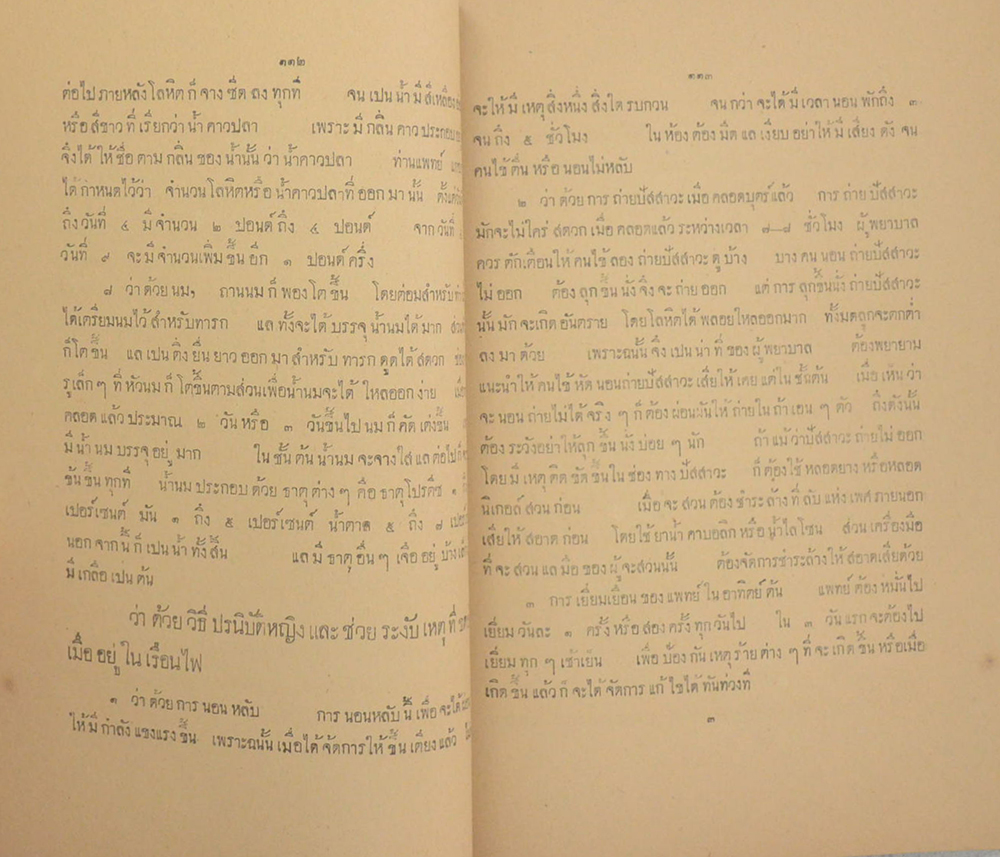 ๓๓๒
ต่อไป ภายหลัง โลหิต ก็ จาง ซีด ลง ทุกที จน เปน น้ำ มี สีเหลือง
หรือ สีขาว ที่ เรียกว่า น้ำ คาวปลา เพราะ มี กลิ่น คาว ประกอบ
จึ่ง ได้ ให้ ชื่อ ตาม กลิ่น ของ น้ำนั้น ว่า น้ำคาวปลา ท่านแพทย์
ได้ กำหนดไว้ว่า จำนวน โลหิตหรือ น้ำคาวปลา ที่ ออก มา นั้น
ถึง วันที่ ๔ มี จำนวน ๒ ปอนด์ ถึง ๔ ปอนด์ จาก วันที่
วันที่ ๙ จะ มี จำนวนเพิ่ม ขึ้น อีก ๑ ปอนด์ ครึ่ง
๗ ว่า ด้วย นม, ถานนม ก็ พอง โต ขึ้น โดยต่อมสำหรับ
ได้เตรียมนมไว้ สำหรับทารก แล ทั้งจะได้ บรรจุ น้ำนมได้ มาก
ก็ โต ขึ้น แล เปน ติ่ง ยื่น ยาว ออก มา สำหรับ ทารก ดูด ได้ สดวก
รูเล็ก ๆ ที่ หัวนม ก็ โตขึ้นตามส่วนเพื่อน้ำนมจะได้ ไหลออก ง่าย
คลอด แล้ว ประมาณ ๒ วัน หรือ ๓ วันขึ้นไป นม ก็ คัด เต่งขึ้น
มี น้ำ นม บรรจุ อยู่ มาก ใน ชั้น ต้น น้ำนม จะ จาง ใส แล ต่อไป ก็
ข้น ขึ้น ทุกที น้ำนม ประกอบ ด้วย ธาตุ ต่าง ๆ คือ ธาตุ โปรตีช ๑
เปอร์เซนต์ มัน ๑ ถึง ๕ เปอร์เซนต์ น้ำตาล ๕ ถึง ๗
นอก จาก นี้ ก็ เปน น้ำ ทั้งสิ้น แล มี ธาตุ อื่น ๆ เจือ อยู่ บ้าง
มี เกลือ เปน ต้น
ว่า ด้วย วิธี ปรนิบัติหญิง และ ช่วย ระงับ เหตุ ที่
เมื่อ อยู่ ใน เรือนไฟ
๑ ว่า ด้วย การ นอน หลับ การ นอนหลับ นี้ เพื่อ จะได้
ให้ มี กำลัง แขงแรง ขึ้น เพราะฉนั้น เมื่อได้ จัดการให้ ขึ้น เตียง แล้ว
๓๓๓
จะ ให้ มี เหตุ สิ่งหนึ่ง สิ่งใด รบกวน จน กว่า จะได้ มี เวลา นอน พักถึง ๓
จน ถึง ๕ ชั่วโมง ใน ห้อง ต้อง มืด แล เงียบ อย่าให้ มี เสียง ดัง จน
คนไข้ ตื่น หรือ นอนไม่หลับ
๒ ว่า ด้วย การ ถ่ายปัสสาวะ เมื่อ คลอดบุตร์แล้ว การ ถ่าย ปัสสาวะ
มักจะไม่ใคร่ สดวก เมื่อ คลอดแล้ว ระหว่างเวลา ๗—๘ ชั่วโมง ผู้ พยาบาล
ควร ตักเตือนให้ คนไข้ ลอง ถ่ายปัสสาวะ ดู บ้าง บาง คน นอน ถ่ายปัสสาวะ
ไม่ ออก ต้อง ลุก ขึ้น นั่ง จึ่ง จะ ถ่าย ออก แต่ การ ลุกขึ้นนั่ง ถ่ายปัสสาวะ
นั้น มัก จะเกิด อันตราย โดยโลหิตได้ พลอยไหลออกมาก ทั้งมดลูกจะตกต่ำ
ลง มา ด้วย เพราะฉนั้น จึ่ง เปน น่า ที่ ของ ผู้ พยาบาล ต้องพยายาม
แนะนำ ให้ คนไข้ หัด นอนถ่ายปัสสาวะ เสียให้ เคย แต่ใน ชั้นต้น เมื่อ เห็น ว่า
จะ นอน ถ่ายไม่ได้ จริง ๆ ก็ ต้อง ผ่อนผันให้ ถ่ายใน ถ้า เอน ๆ ตัว ถึงดังนั้น
ต้อง ระวังอย่าให้ลุก ขึ้น นั่ง บ่อย ๆ นัก ถ้า แม้ ว่าปัสสาวะ ถ่ายไม่ ออก
โดย มี เหตุ ติด ขัด ขึ้นใน ช่อง ทาง ปัสสาวะ ก็ ต้องใช้ หลอดยาง หรือหลอด
นิเกอล์ สวน ก่อน เมื่อ จะ สวน ต้อง ชำระ ล้าง ที่ ลับ แห่ง เพศ ภายนอก
เสียให้ สอาด ก่อน โดยใช้ ยาน้ำ คาบอลิก หรือ น้ำไลโซน ส่วน เครื่องมือ
ที่ จะ สวน แล มือ ของ ผู้ จะสวนนั้น ต้องจัดการชำระล้างให้ สอาดเสียด้วย
๓ การ เยี่ยมเยือน ของ แพทย์ ใน อาทิตย์ ต้น แพทย์ ต้อง หมั่นไป
เยี่ยม วันละ ๑ ครั้ง หรือ สอง ครั้ง ทุก วันไป ใน ๓ วัน แรก จะต้องไป
เยี่ยม ทุก ๆ เช้าเย็น เพื่อ ป้อง กัน เหตุ ร้าย ต่าง ๆ ที่ จะ เกิด ขึ้น หรือเมื่อ
เกิด ขึ้น แล้ว ก็ จะได้ จัดการ แก้ ไขได้ ทันท่วงที
๓